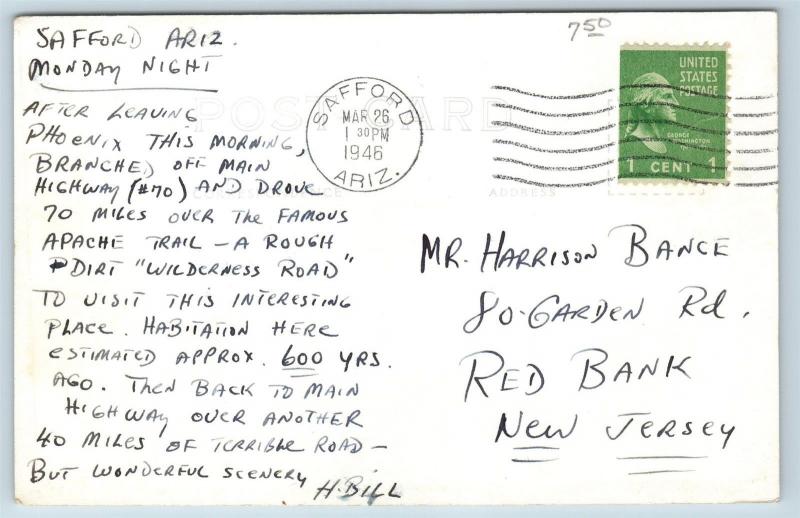 SAFFORD ARIZ.
MONDAY NIGHT
AFTER LEAVING
PHOENIX THIS MORNING,
BRANCHED OFF MAIN
HIGHWAY (#70) AND DROVE
70 MILES OVER THE FAMOUS
APACHE TRAIL – A ROUGH
DIRT "WILDERNESS ROAD"
TO VISIT THIS INTERESTING
PLACE. HABITATION HERE
ESTIMATED APPROX. 600 YRS.
AGO. THEN BACK TO MAIN
HIGHWAY OVER ANOTHER
40 MILES OF TERRIBLE ROAD –
BUT WONDERFUL SCENERY
H. BILL
POST CARD
CORRESPONDENCE
ADDRESS
SAFFORD
MAR 26
1 30 PM
1946
ARIZ.
7 50
UNITED
STATES
POSTAGE
GEORGE
WASHINGTON
1 CENT 1
MR. HARRISON BANCE
80-GARDEN Rd.
RED BANK
NEW JERSEY